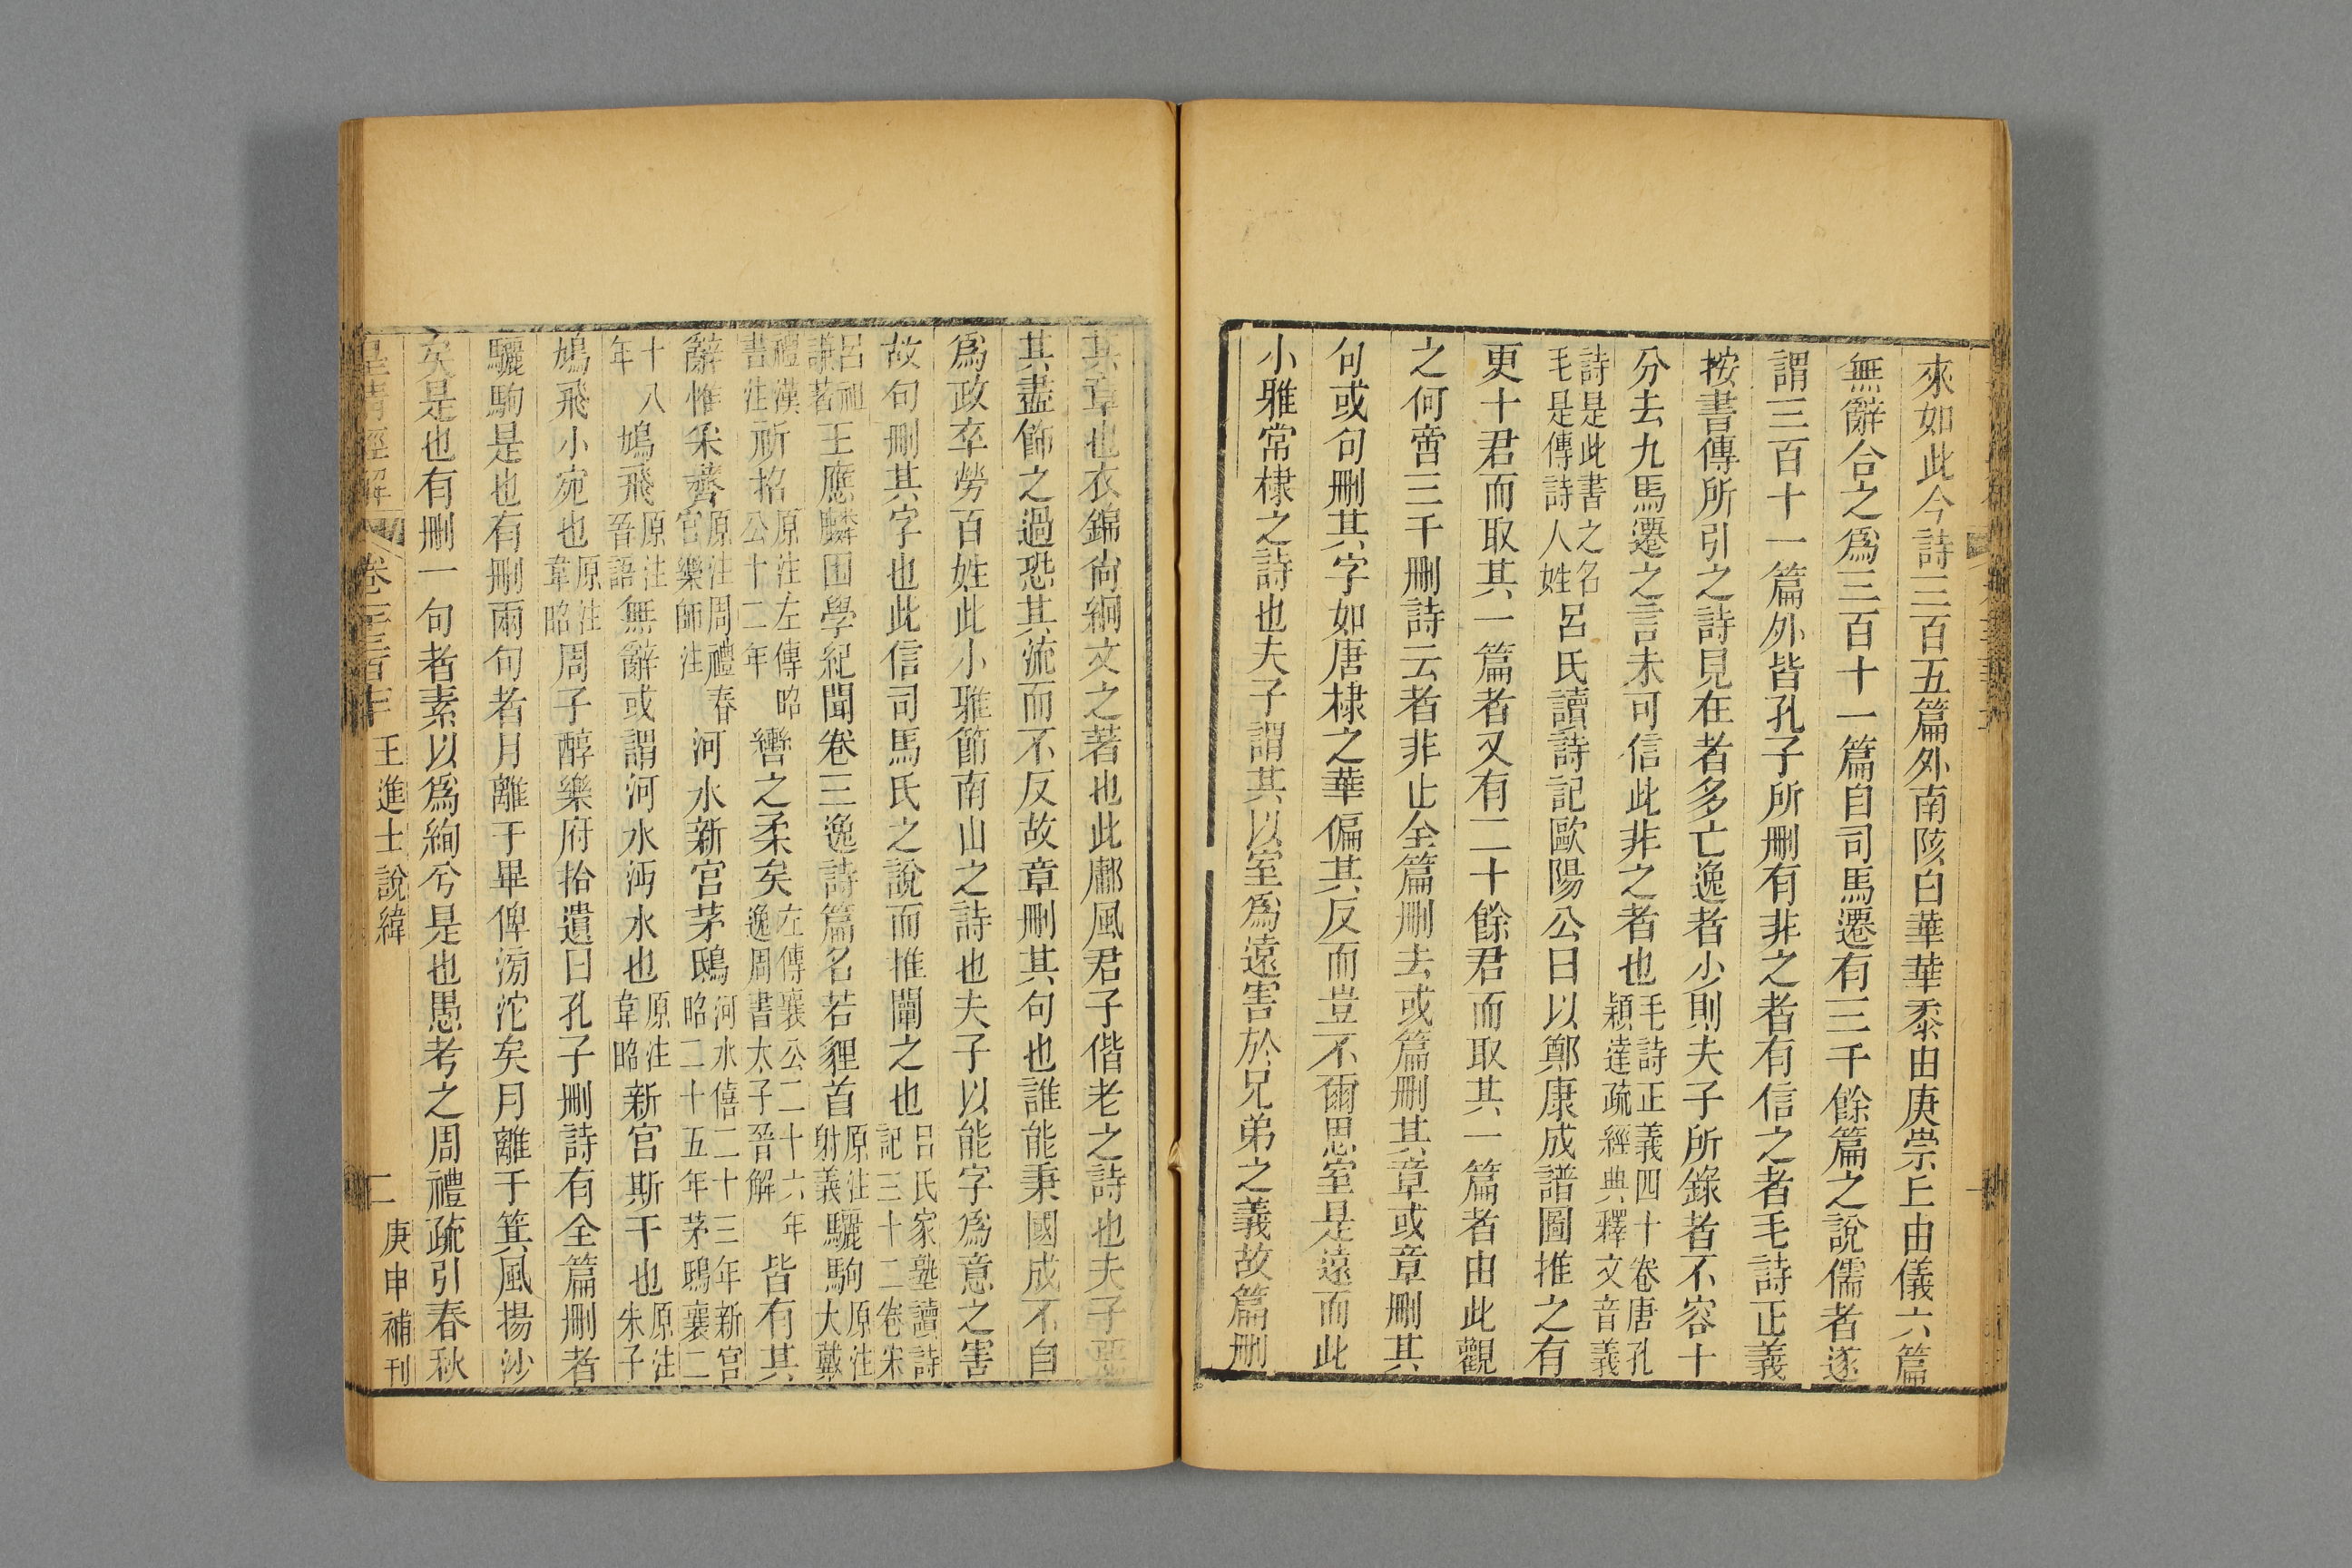 來如此今詩三百五篇外南陔白華華黍由庚崇丘由儀六篇
無辭合之爲三百十一篇自司馬遷有三千餘篇之說儒者遂
謂三百十一篇外皆孔子所刪有非之者有信之者毛詩正義
按書傳所引之詩見在者多亡逸者少則夫子所錄者不容十
分去九馬遷之言未可信此非之者也毛詩正義四十卷唐孔
穎達疏經典釋文音義
詩是此書之名
毛是傳詩人姓
呂氏讀詩記歐陽公曰以鄭康成譜圖推之有
更十君而取其一篇者又有二十餘君而取其一篇者由此觀
之何啻三千刪詩云者非止全篇刪去或篇刪其章或章刪其
句或句刪其字如唐棣之華偏其反而豈不爾思室是遠而此
小雅常棣之詩也夫子謂其以室爲遠害於兄弟之義故篇刪
其章也衣錦尙絅文之著也此鄘風君子偕老之詩也夫子惡
其盡飾之過恐其流而不反故章刪其句也誰能秉國成不自
爲政卒勞百姓此小雅節南山之詩也夫子以能字爲意之害
故句刪其字也此信司馬氏之說而推闡之也呂氏家塾讀詩
記三十二卷宋
呂祖
謙著
王應麟困學紀聞卷三逸詩篇名若貍首原注
射義
驪駒原注
大戴
禮漢
書注
祈招原注左傳昭
公十二年
轡之柔矣左傳襄公二十六年
逸周書太子晉解
皆有其
辭惟采薺原注周禮春
官樂師注
河水新宮茅鴟河水僖二十三年新宮
昭二十五年茅鴟襄二
十八
年
鳩飛原注
晉語
無辭或謂河水沔水也原注
韋昭
新宮斯干也原注
朱子
鳩飛小宛也原注
韋昭
周子醇樂府拾遺曰孔子刪詩有全篇刪者
驪駒是也有刪兩句者月離于畢俾滂沱矣月離于箕風揚沙
矣是也有刪一句者素以爲絢兮是也愚考之周禮疏引春秋
皇清經解
王進士說緯
二
庚申補刊